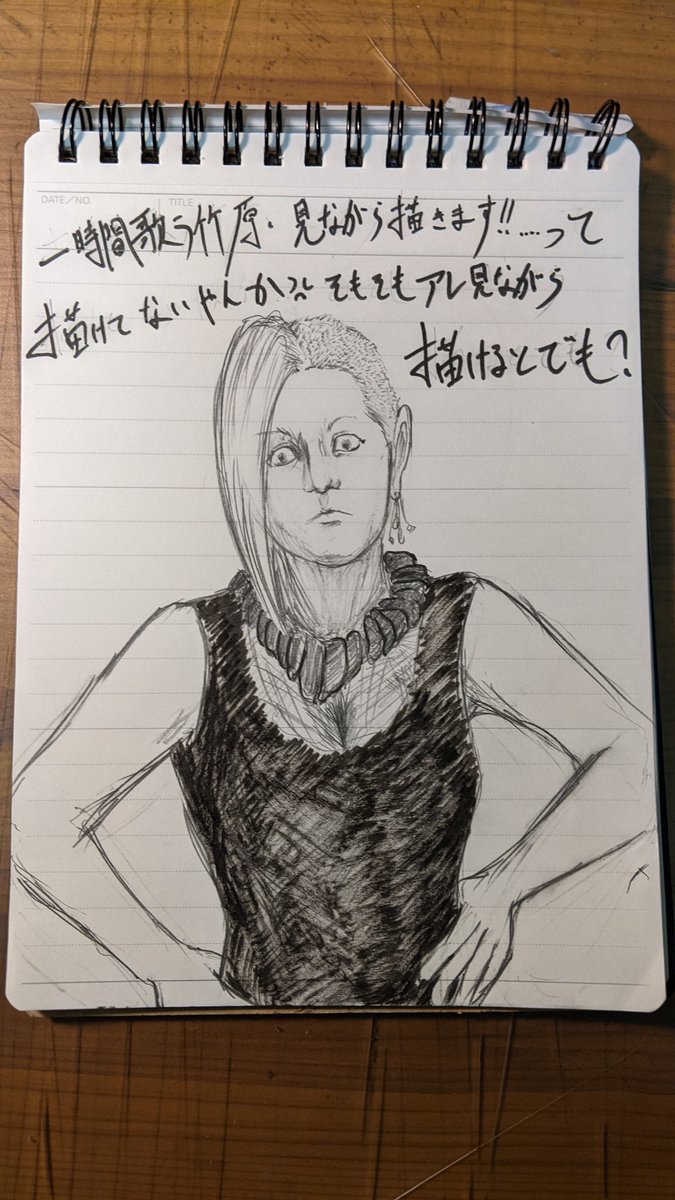 DATE/NO.
TITLE
一時間歌う竹原、見ながら描きます!!……って
描けてないやんか そもそもアレ見ながら
描けるとでも?